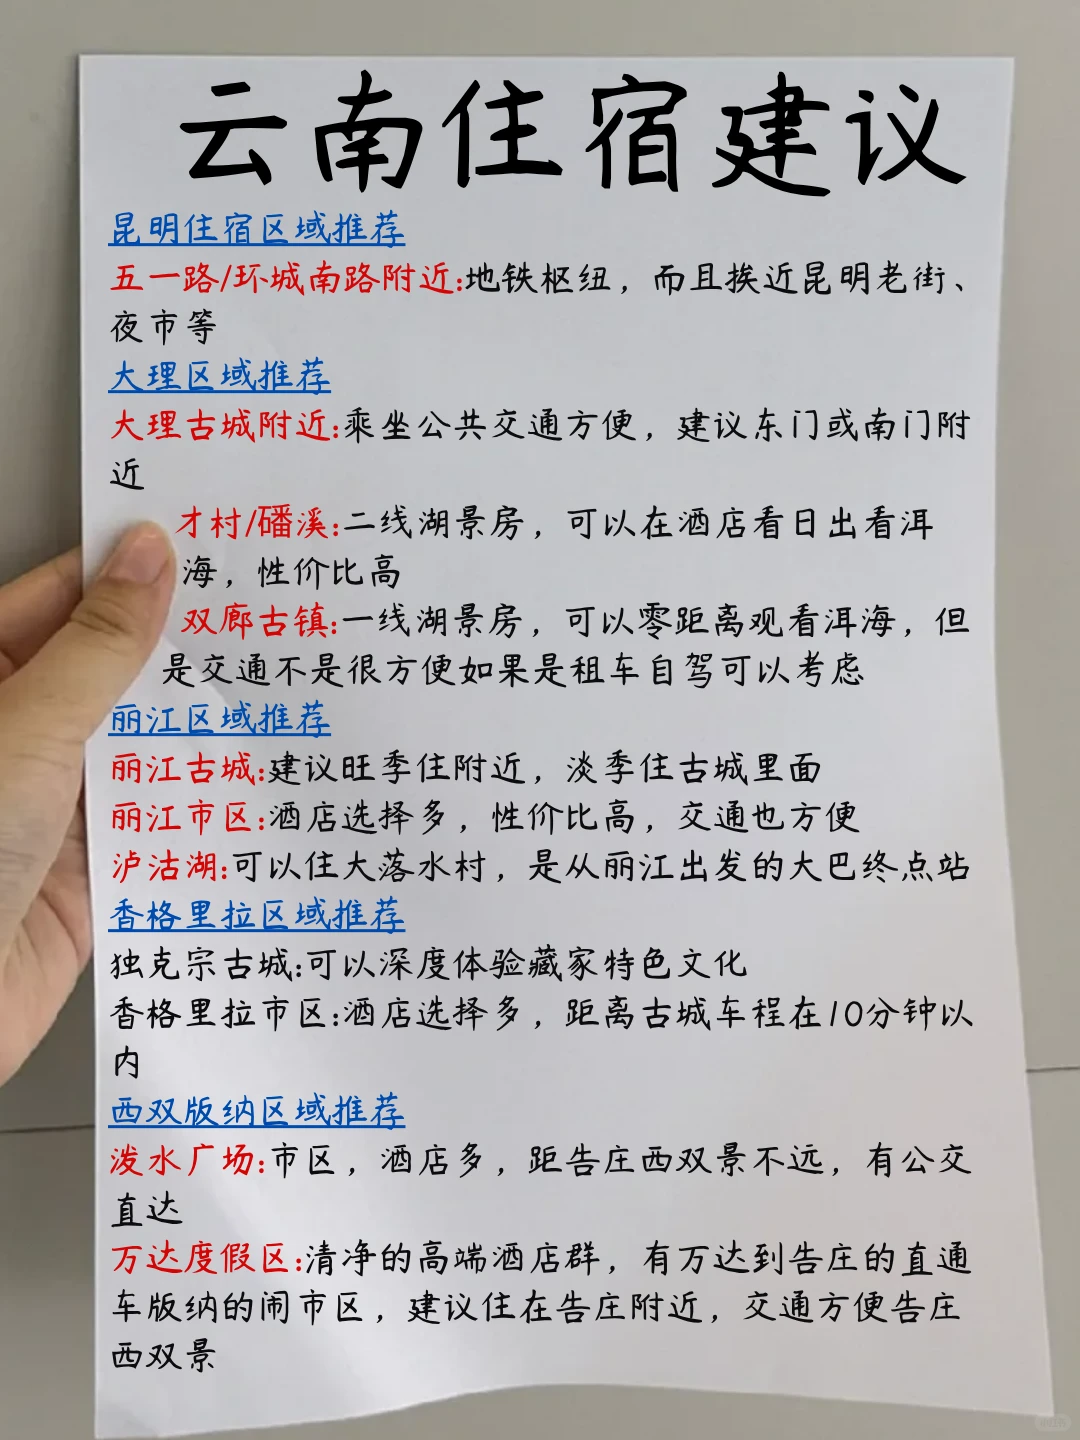 云南住宿建议
昆明住宿区域推荐
五一路/环城南路附近:地铁枢纽，而且挨近昆明老街、
夜市等
大理区域推荐
大理古城附近:乘坐公共交通方便，建议东门或南门附
近
才村/磻溪:二线湖景房，可以在酒店看日出看洱
海，性价比高
双廊古镇:一线湖景房，可以零距离观看洱海，但
是交通不是很方便如果是租车自驾可以考虑
丽江区域推荐
丽江古城:建议旺季住附近，淡季住古城里面
丽江市区:酒店选择多，性价比高，交通也方便
泸沽湖:可以住大落水村，是从丽江出发的大巴终点站
香格里拉区域推荐
独克宗古城:可以深度体验藏家特色文化
香格里拉市区:酒店选择多，距离古城车程在10分钟以
内
西双版纳区域推荐
泼水广场:市区，酒店多，距告庄西双景不远，有公交
直达
万达度假区:清净的高端酒店群，有万达到告庄的直通
车版纳的闹市区，建议住在告庄附近，交通方便告庄
西双景